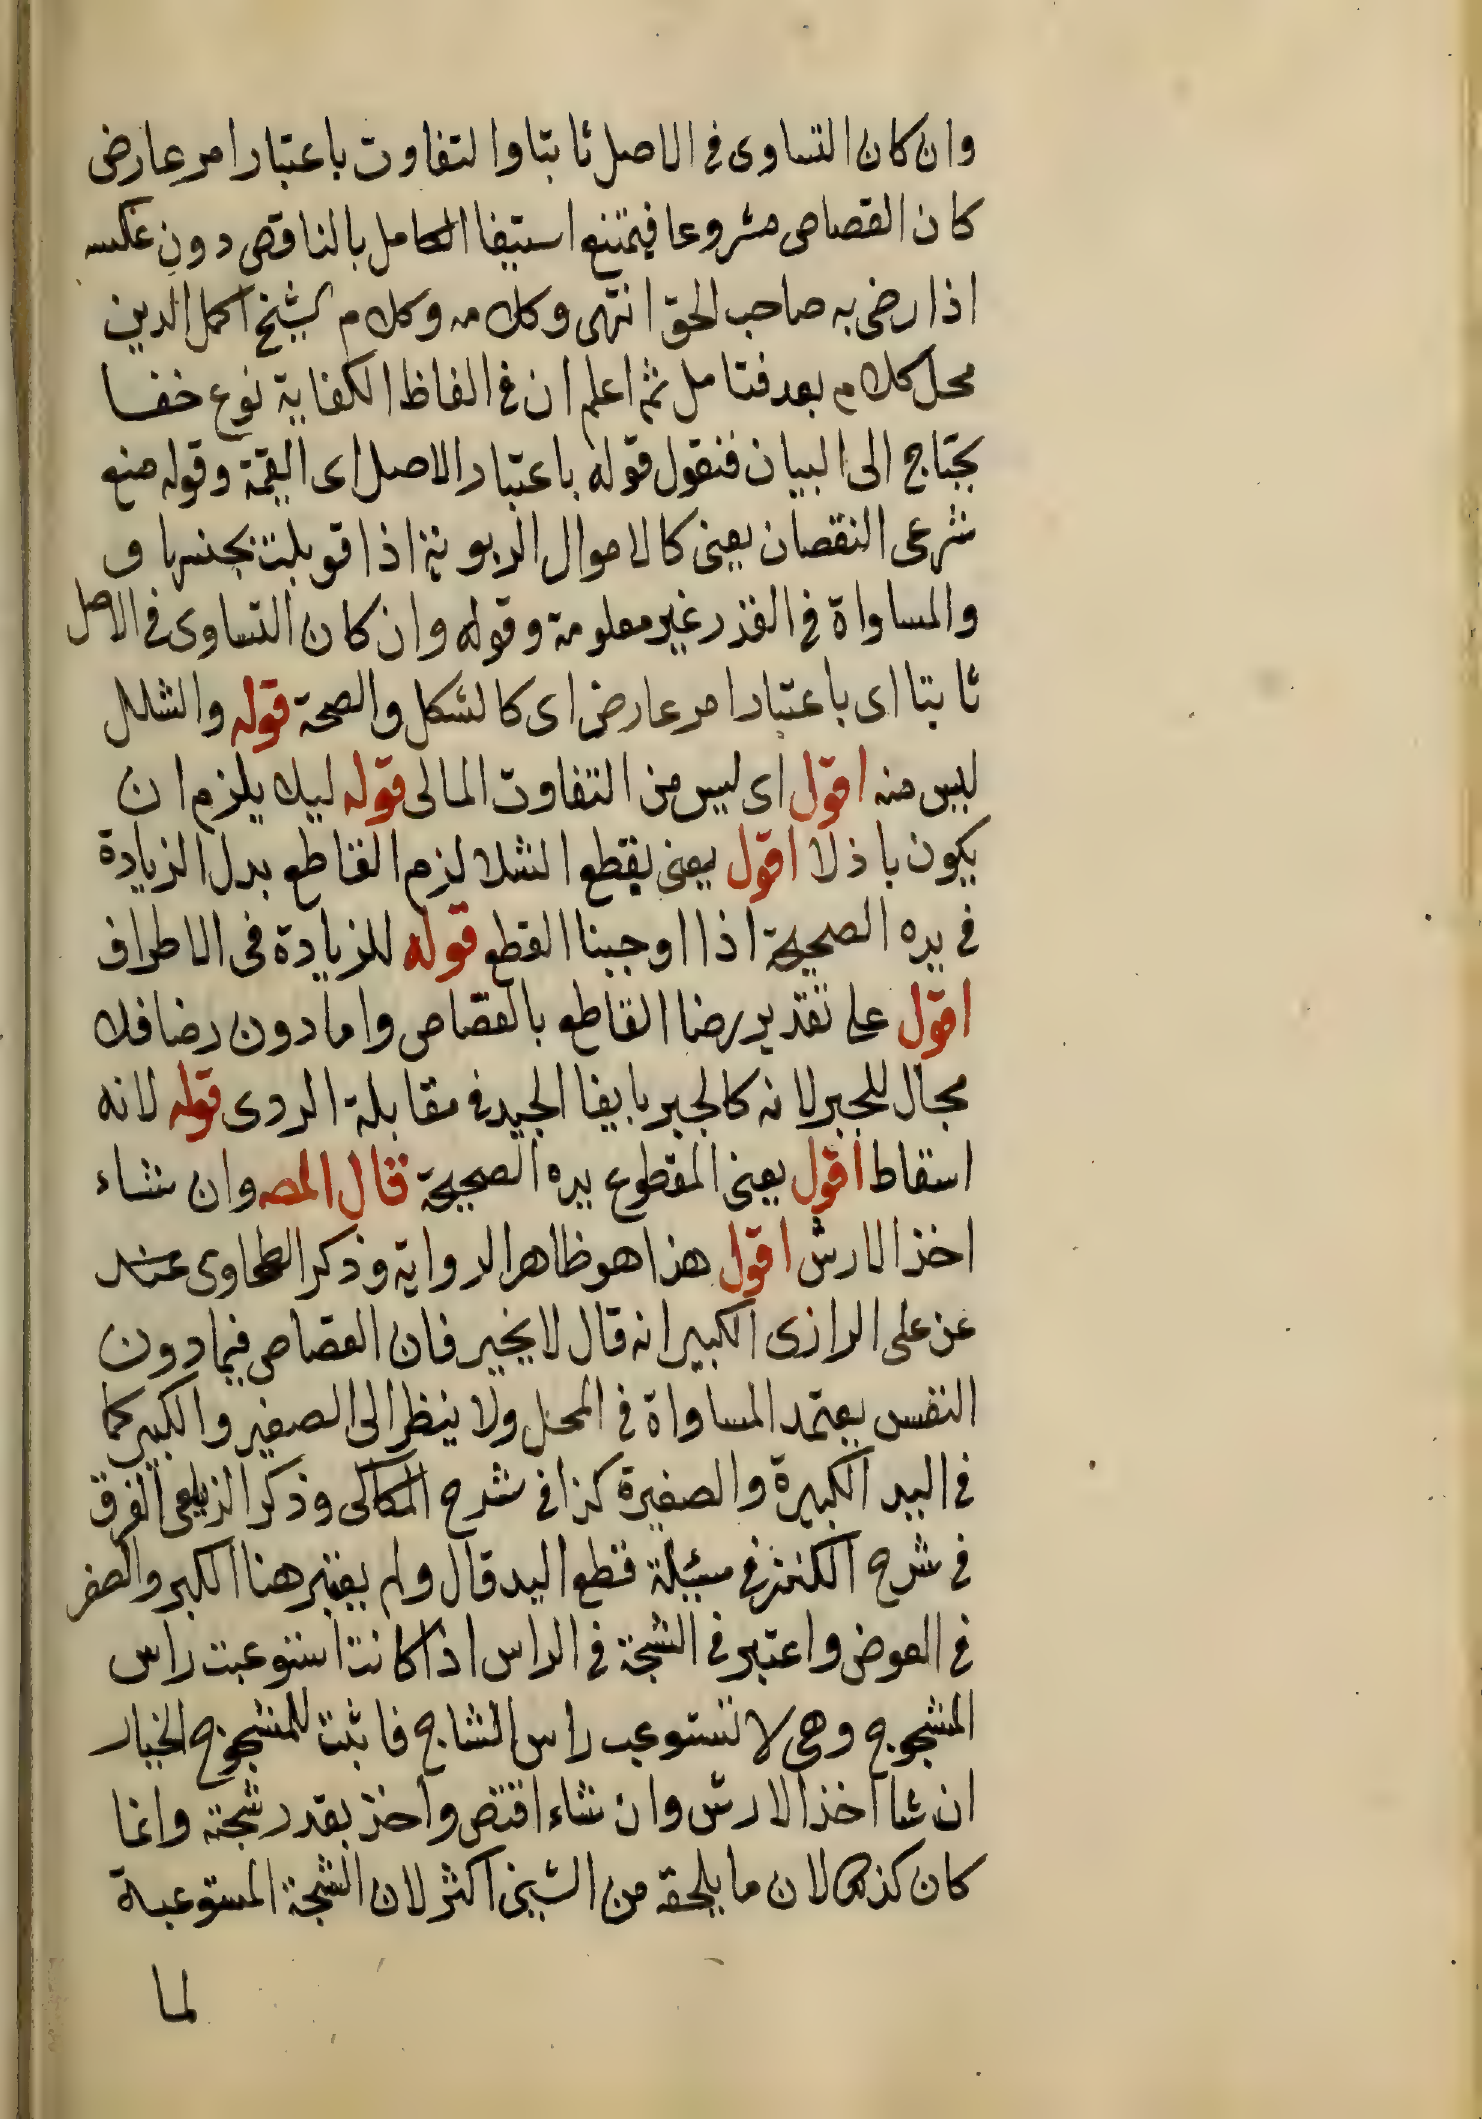 وان كان التساوى فى الاصل ثابتا والتفاوت باعتبار امر عارض
كان القصاص مشروعا فيمتنع استيفا الكامل بالناقص دون عكسه
اذا رضى به صاحب الحق انتهى وكلامه وكلام الشيخ اكمل الدين
محل كلام بعد فتامل ثم اعلم ان فى الفاظ الكفاية نوع خفا
يحتاج الى البيان فنقول قوله باعتبار الاصل اى القيمة وقوله منع
شرعى النقصان يعنى كالاموال الربوية اذا قوبلت بجنسها و
والمساواة فى القدر غير معلومة وقوله وان كان التساوى فى الاصل
ثابتا اى باعتبار امر عارض اى كالشكل والصحة قوله والشلل
ليس منه اقول اى ليس من التفاوت المالى قوله ليلا يلزم ان
يكون باذلا اقول يعنى بقطع الشلا لزم القاطع بدل الزيادة
فى يده الصحيحة اذا اوجبنا القطع قوله للزيادة فى الاطراف
اقول على تقدير رضا القاطع بالقصاص واما دون رضا فلا
مجال للجبر لانه كالجبر بايفا الجيد فى مقابلة الردى قوله لانه
اسقاط اقول يعنى المقطوع يده الصحيحة قال المصه وان شاء
اخذ الارش اقول هذا هو ظاهر الرواية وذكر الطحاوى عند
عن على الرازى الكبير انه قال لا يخير فان القصاص فيما دون
النفس يعتمد المساواة فى المحل ولا ينظر الى الصغير والكبير كما
فى اليد الكبيرة والصغيرة كذا فى شرح الكاكى وذكر الزيلعى الفرق
فى شرح الكنز فى مسئلة قطع اليد قال ولم يعتبر هنا الكبر والصغر
فى العوض واعتبر فى الشجة فى الراس اذا كانت استوعبت راس
المشجوج وهى لا تستوعب راس الشاج فاثبت للمشجوج الخيار
ان شا اخذ الارش وان شاء اقتص واخذ بقدر شجته وانما
كان كذلك لان ما يلحقه من الشين اكثر لان الشجة المستوعبة
لما